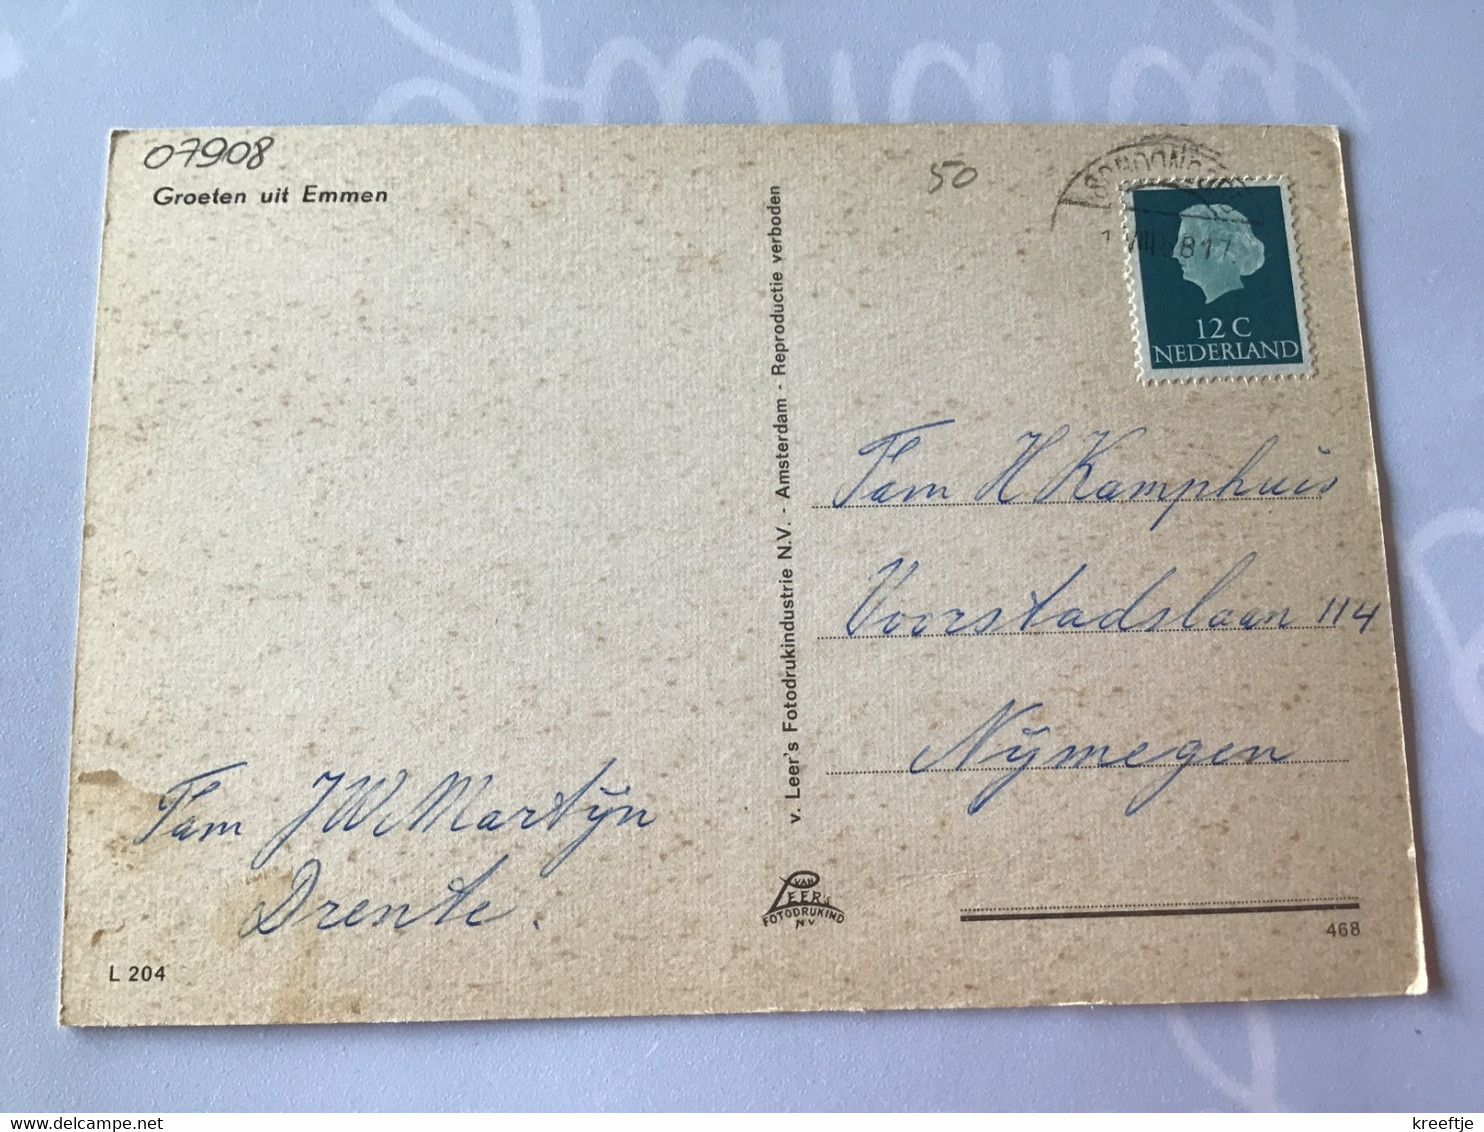 07908
Groeten uit Emmen
50
12 C
NEDERLAND
v. Leer's Fotodrukindustrie N.V. - Amsterdam - Reproductie verboden
Fam H Kamphuis
Voorstadslaan 114
Nijmegen
Fam J W Martijn
Drente.
VAN
LEER's
FOTODRUKIND
N V
L 204
468
delcampe.net
kreeftje